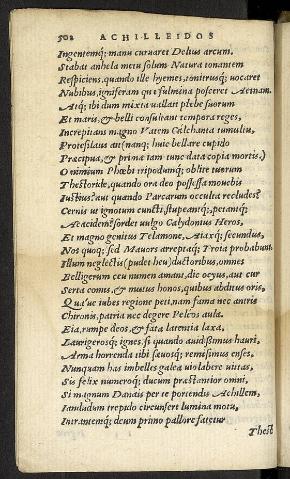 502 ACHILLEIDOS
Ingentemq; manu curuaret Delius arcum.
Stabat anhela metu solum Natura tonantem
Respiciens, quando ille hyemes, tonitrusq; uocaret
Nubibus, igniferam quot fulmina posceret Aetnam.
Atq; ibi dum mixta uallati plebe suorum
Et maris, & belli consultant tempora reges,
Increpitans magno Vatem Calchanta tumultu,
Protesilaus ait (nanq; huic bellare cupido
Præcipua, & prima iam tunc data copia mortis,)
O nimium Phœbi tripodumq; oblite tuorum
Thestoride, quando ora deo possessa mouebis
Iustius? aut quando Parcarum occulta recludes?
Cernis ut ignotum cuncti, stupeantq;, petantq;
Aeaciden? sordet uulgo Calydonius Heros,
Et magno genitus Telamone, Aiaxq; secundus,
Nos quoq; sed Mauors arreptaq; Troia probabunt.
Illum neglectis (pudet heu) ductoribus, omnes
Belligerum ceu numen amant, dic ocyus, aut cur
Serta comis, & multus honos, quibus abditus oris,
Qua'ue iubes regione peti, nam fama nec antris
Chironis, patria nec degere Peleos aula.
Eia, rumpe deos, & fata latentia laxa,
Laurigerosq; ignes, si quando auidissimus hauri,
Arma horrenda tibi sæuosq; remisimus enses,
Nunquam has imbelles galea uiolabere uittas,
Sis felix numeroq; ducum præstantior omni,
Si magnum Danais per te portendis Achillem,
Iamdudum trepido circunfert lumina motu,
Intrantemq; deum primo pallore fatetur
Thest